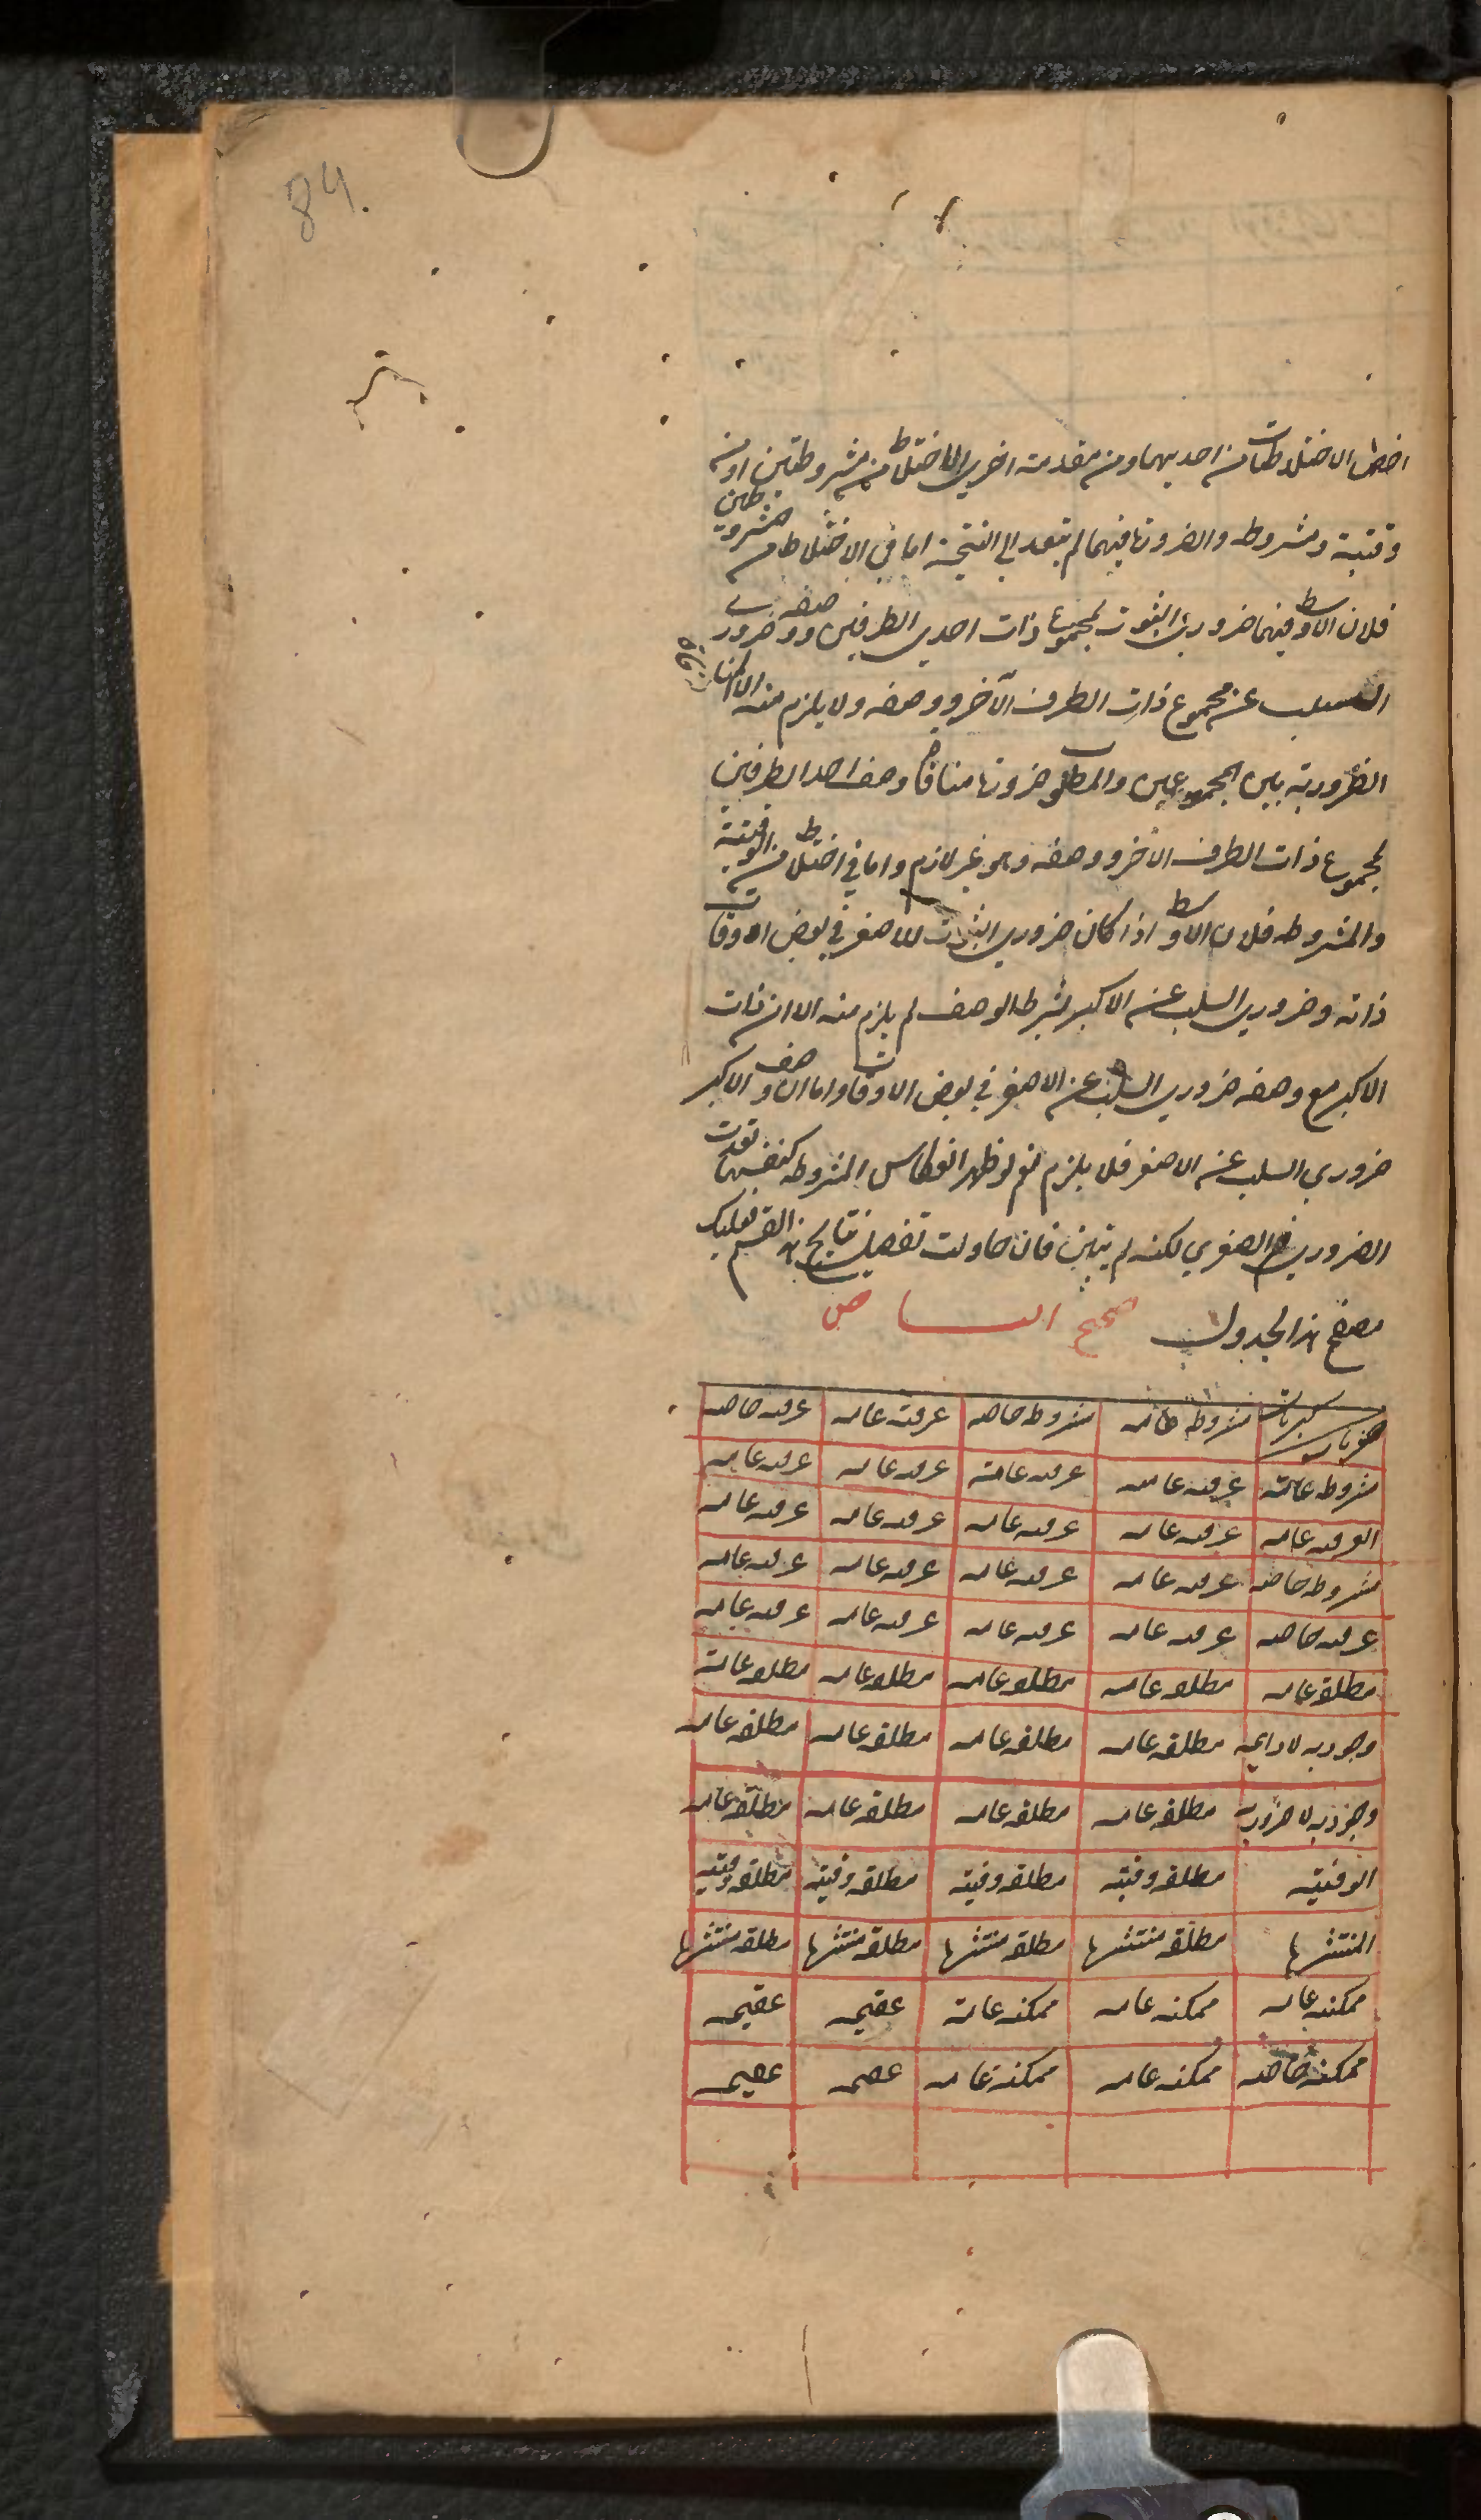 84.
اخص الاختلاطات من احديهما ومن مقدمة اخرى الاختلاط من مشروطتين او من
وقتية ومشروطه والضرورة فيهما لم يتعد الى النتيجة اما في الاختلاط من مشروطتين
فلان الاوسط فيهما ضروري الثبوت لمجموع ذات احدى الطرفين ووصفه وضروري
السلب عن مجموع ذات الطرف الآخر ووصفه ولا يلزم منه الا المنافاة
الضرورية بين المجموعين والمطلوب ضرورة منافاة وصف احد الطرفين
لمجموع ذات الطرف الآخر ووصفه وهو غير لازم واما في اختلاط من الوقتية
والمشروطه فلان الاوسط اذا كان ضروري الثبوت للاصغر في بعض اوقات
ذاته وضروري السلب عن الاكبر بشرط الوصف لم يلزم منه الا ان ذات
الاكبر مع وصفه ضروري السلب عن الاصغر في بعض الاوقات واما ان وصف الاكبر
ضروري السلب عن الاصغر فلا يلزم نعم لو ظهر انعكاس المشروطه كنفسها تعدت
الضرورية من الصغرى لكنه لم يتبين فان حاولت تفصيل نتايج هذا القسم فعليك
بتصفح هذا الجدول
صغريات كبريات مشروطه عامه مشروطه خاصه عرفية عامه عرفيه خاصه
مشروطه عامة عرفيه عامه عرفيه عامة عرفيه عامه عرفيه عامه
العرفيه عامه عرفيه عامه عرفيه عامه عرفيه عامه عرفيه عامه
مشروطه خاصه عرفيه عامه عرفيه عامه عرفيه عامه عرفيه عامه
عرفيه خاصه عرفيه عامه عرفيه عامه عرفيه عامه عرفيه عامه
مطلقه عامه مطلقه عامه مطلقه عامه مطلقه عامه مطلقه عامة
وجوديه لا دايمه مطلقه عامه مطلقه عامه مطلقه عامه مطلقه عامه
وجوديه لا ضروريه مطلقه عامه مطلقه عامه مطلقه عامه مطلقه عامه
الوقتيه مطلقه وقتيه مطلقه وقتيه مطلقه وقتيه مطلقه وقتيه
المنتشره مطلقه منتشره مطلقه منتشره مطلقه منتشره مطلقه منتشره
ممكنه عامه ممكنه عامه ممكنه عامة عقيمه عقيمه
ممكنه خاصه ممكنه عامه ممكنه عامه عقيمه عقيمه